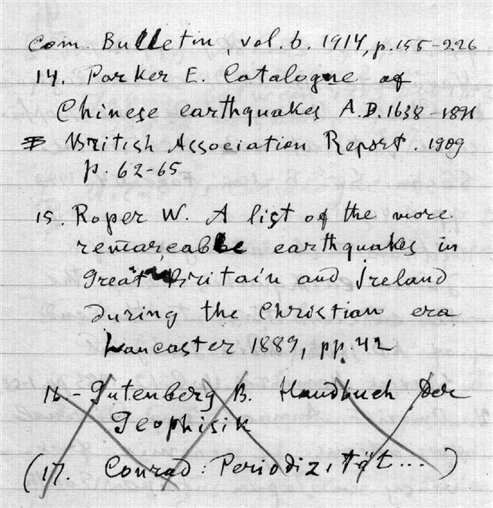 Com. Bulletin, vol. 6. 1914, p. 155-226
14. Parker E. Catalogne of
Chinese earthquakes A.D. 1638-1891
British Association Report. 1909
p. 62-65
15. Roper W. A list of the more
remareable earthquakes in
Great Britain and Ireland
during the Christian era
Lancaster 1889, pp. 42
16 - Gutenberg B. Handbuch Der
Geophisik
(17. Conrad: Periodizität...)